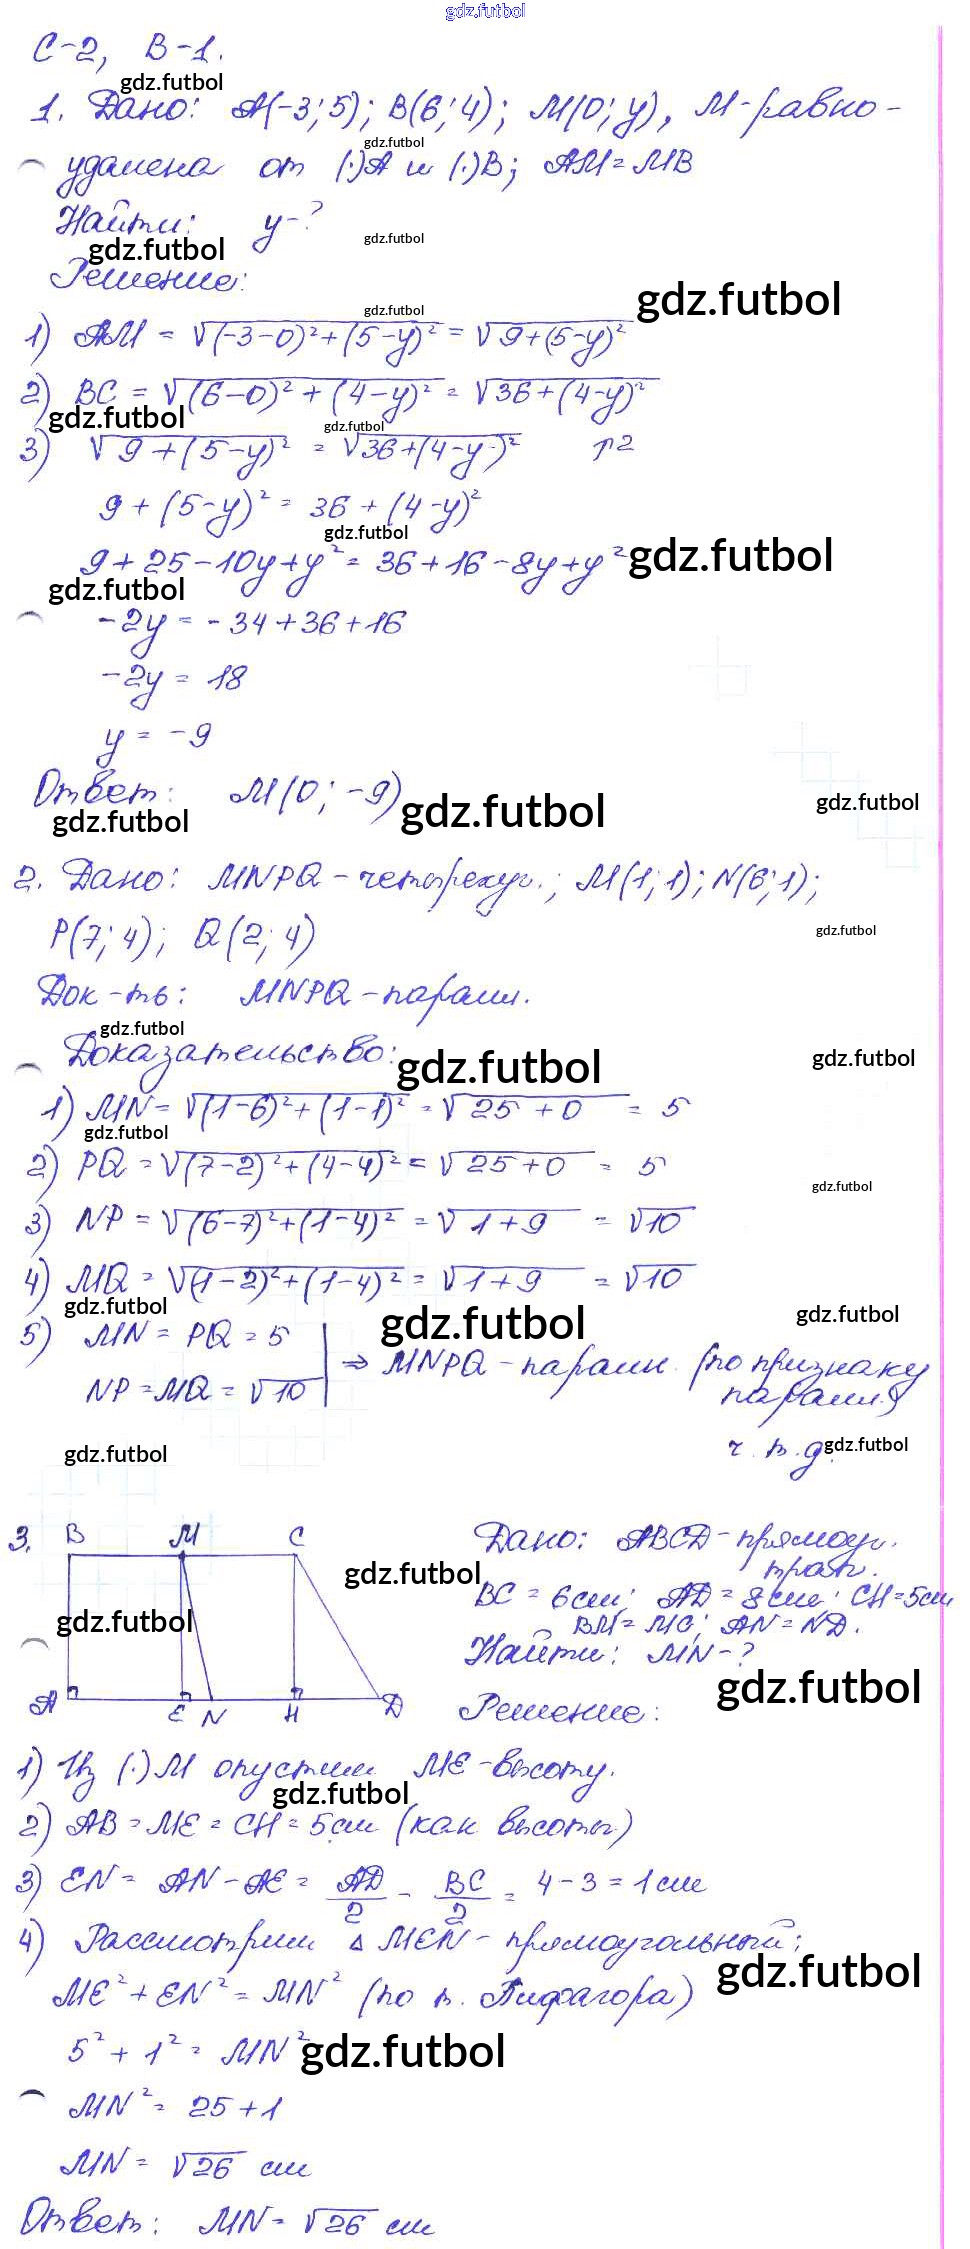 gdz.futbol
С-2, В-1.
gdz.futbol
1. Дано: A(-3;5); B(6;4); M(0;y), M-равно-
gdz.futbol
удалена от (·)A и (·)B; AM=MB
Найти: y-?
gdz.futbol gdz.futbol
Решение:
gdz.futbol gdz.futbol
1) AM = √(-3-0)²+(5-y)² = √9+(5-y)²
2) BC = √(6-0)²+(4-y)² = √36+(4-y)²
gdz.futbol gdz.futbol
3) √9+(5-y)² = √36+(4-y)² ↑2
9+(5-y)² = 36+(4-y)²
gdz.futbol
9+25-10y+y² = 36+16-8y+y² gdz.futbol
gdz.futbol
-2y = -34+36+16
-2y = 18
y = -9
Ответ: M(0;-9) gdz.futbol gdz.futbol
gdz.futbol
2. Дано: MNPQ-четырехуг.; M(1;1); N(6;1);
P(7;4); Q(2;4) gdz.futbol
Док-ть: MNPQ-парал.
gdz.futbol
Доказательство: gdz.futbol gdz.futbol
1) MN = √(1-6)²+(1-1)² = √25+0 = 5
gdz.futbol
2) PQ = √(7-2)²+(4-4)² = √25+0 = 5
gdz.futbol
3) NP = √(6-7)²+(1-4)² = √1+9 = √10
4) MQ = √(1-2)²+(1-4)² = √1+9 = √10
gdz.futbol gdz.futbol gdz.futbol
5) MN = PQ = 5
NP = MQ = √10 ⇒ MNPQ-парал. (по признаку
парал.)
ч.т.д. gdz.futbol
gdz.futbol
3. B M C
Дано: ABCD-прямоуг.
трап.
gdz.futbol
BC = 6см; AD = 8см; CH=5см
gdz.futbol
BM=MC; AN=ND.
Найти: MN-?
gdz.futbol
A E N H D
Решение:
1) Из (·)M опустим ME-высоту.
gdz.futbol
2) AB=ME=CH=5см (как высоты)
3) EN = AN-AE = AD/2 - BC/2 = 4-3=1см
4) Рассмотрим △ MEN-прямоугольный;
gdz.futbol
ME²+EN²=MN² (по т. Пифагора)
5²+1²=MN² gdz.futbol
MN² = 25+1
MN = √26 см
Ответ: MN = √26 см